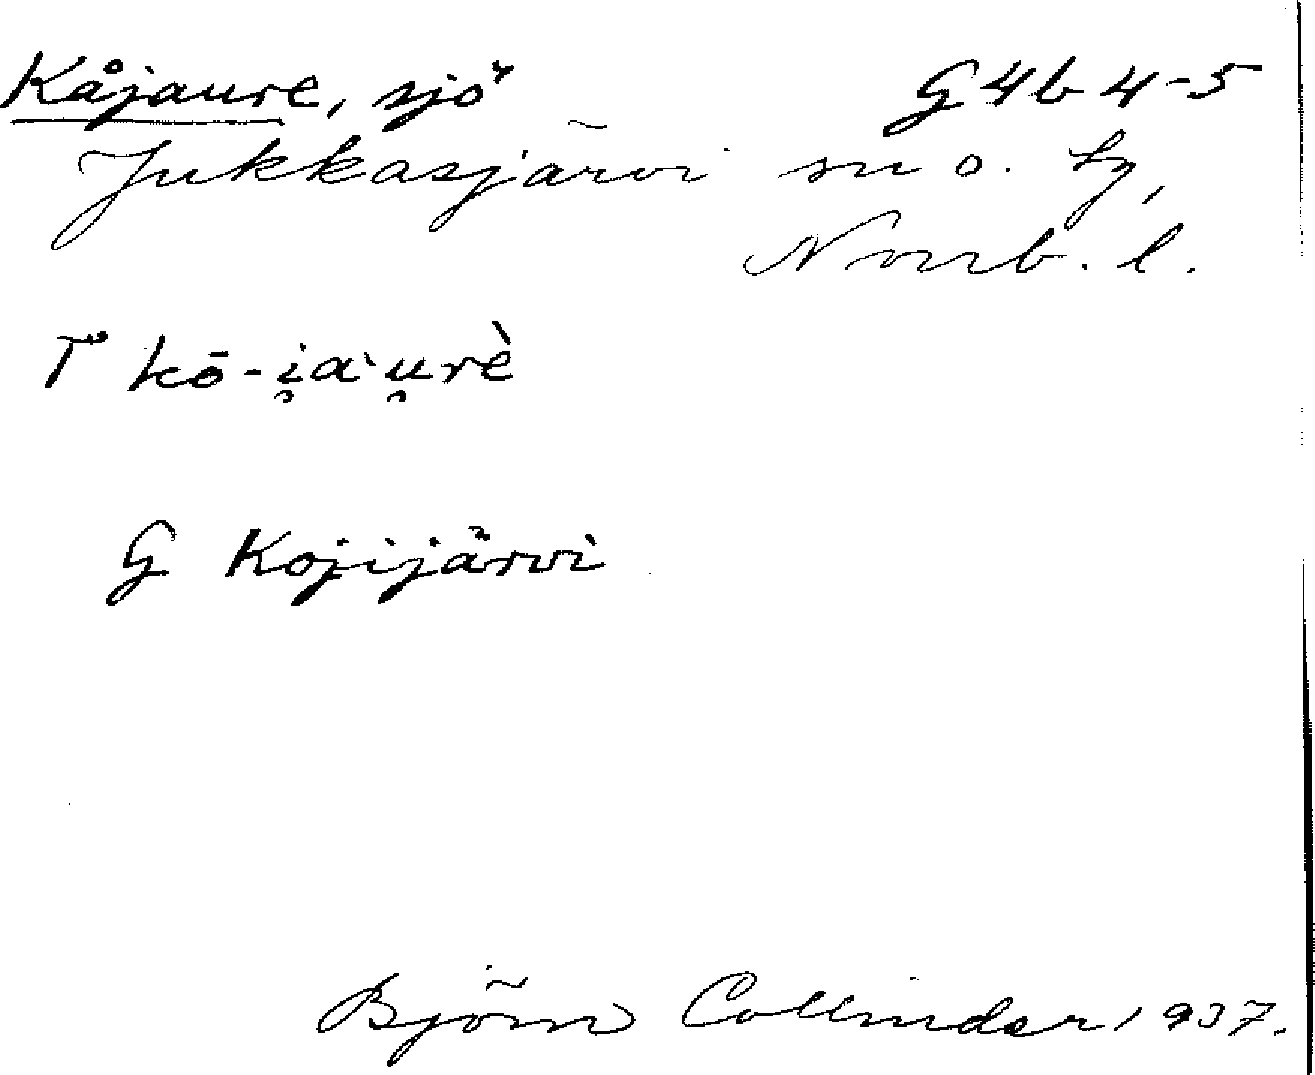 Kåjaure, sjö G4b 4-5
Jukkasjärvi sn o. tg,
Norrb. l.
T kō-i̯a`u̯rè
G Kojijärvi
Björn Collinder 1937.